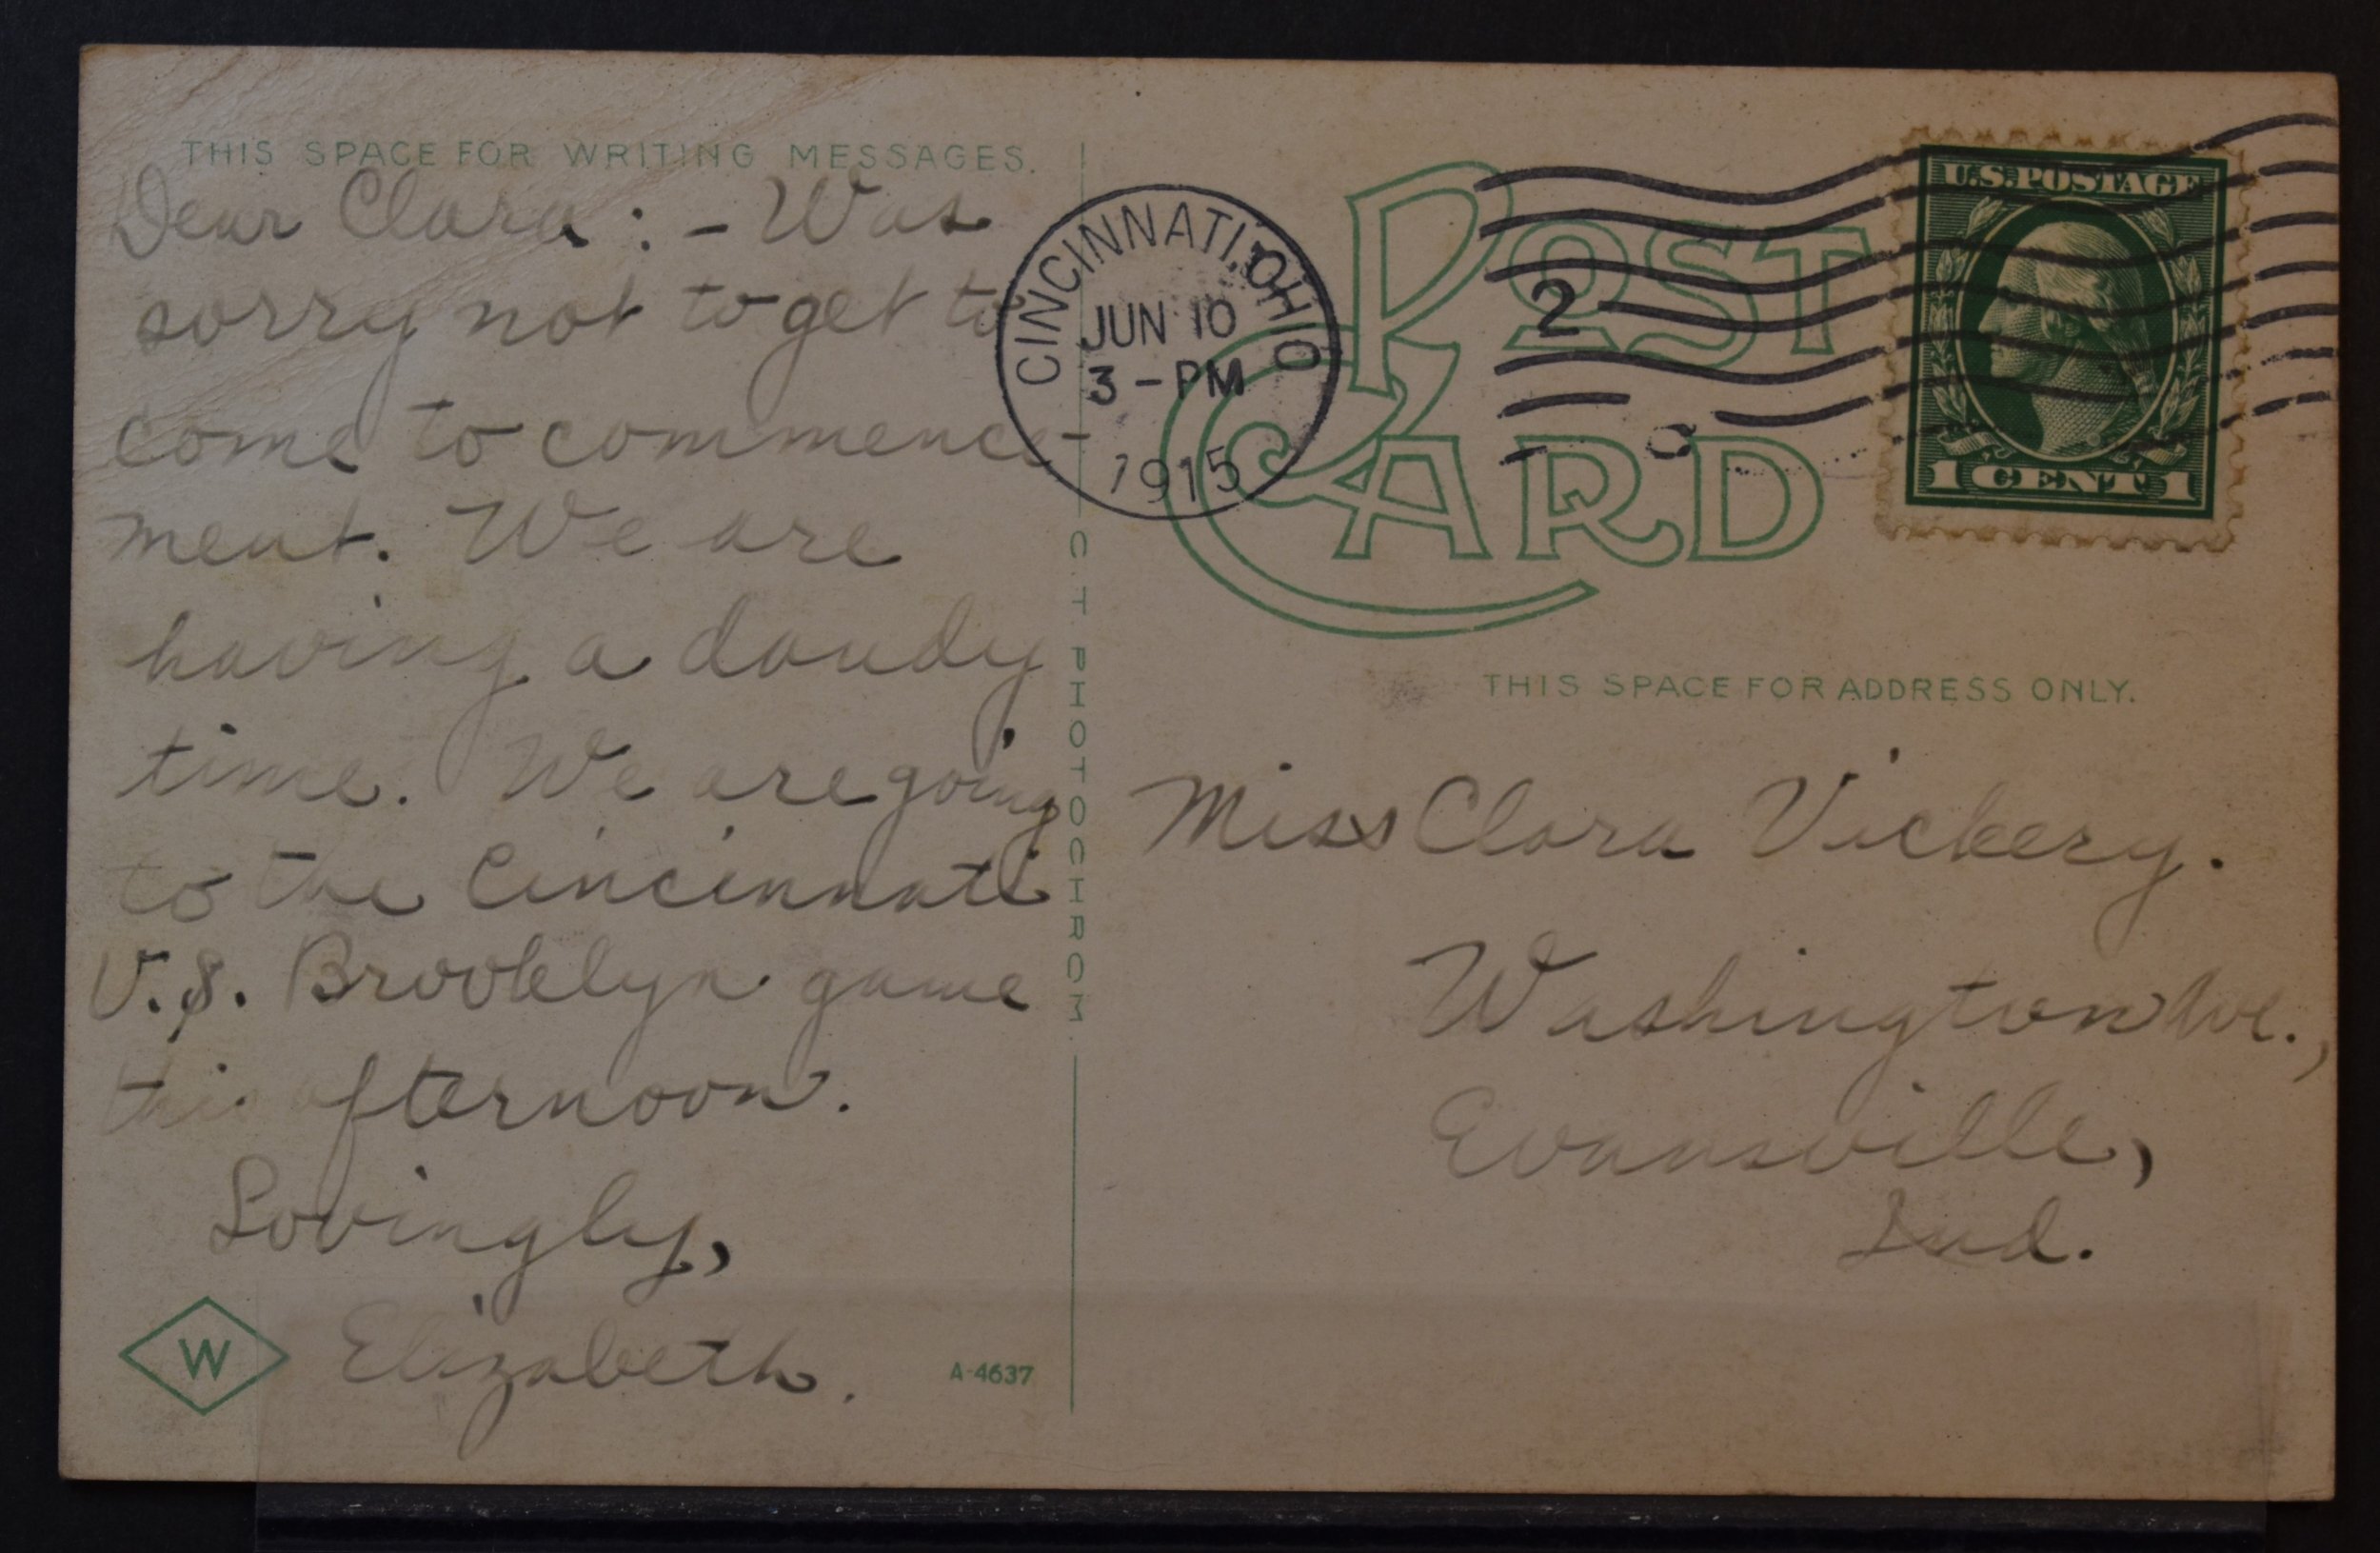 THIS SPACE FOR WRITING MESSAGES.
Dear Clara : – Was
sorry not to get to
come to commence-
ment. We are
having a dandy
time. We are going
to the Cincinnati
V.S. Brooklyn game
this afternoon.
Lovingly,
Elizabeth.
W
A-4637
C. T. PHOTOCHROM.
CINCINNATI, OHIO
JUN 10
3 - PM
1915
2
POST
CARD
U.S. POSTAGE
1 CENT 1
THIS SPACE FOR ADDRESS ONLY.
Miss Clara Vickery.
Washington Ave.,
Evansville,
Ind.